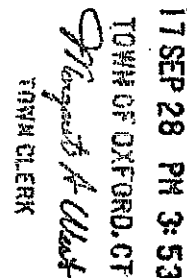 17 SEP 28 PM 3:53
TOWN OF OXFORD, CT
Margaret A West
TOWN CLERK